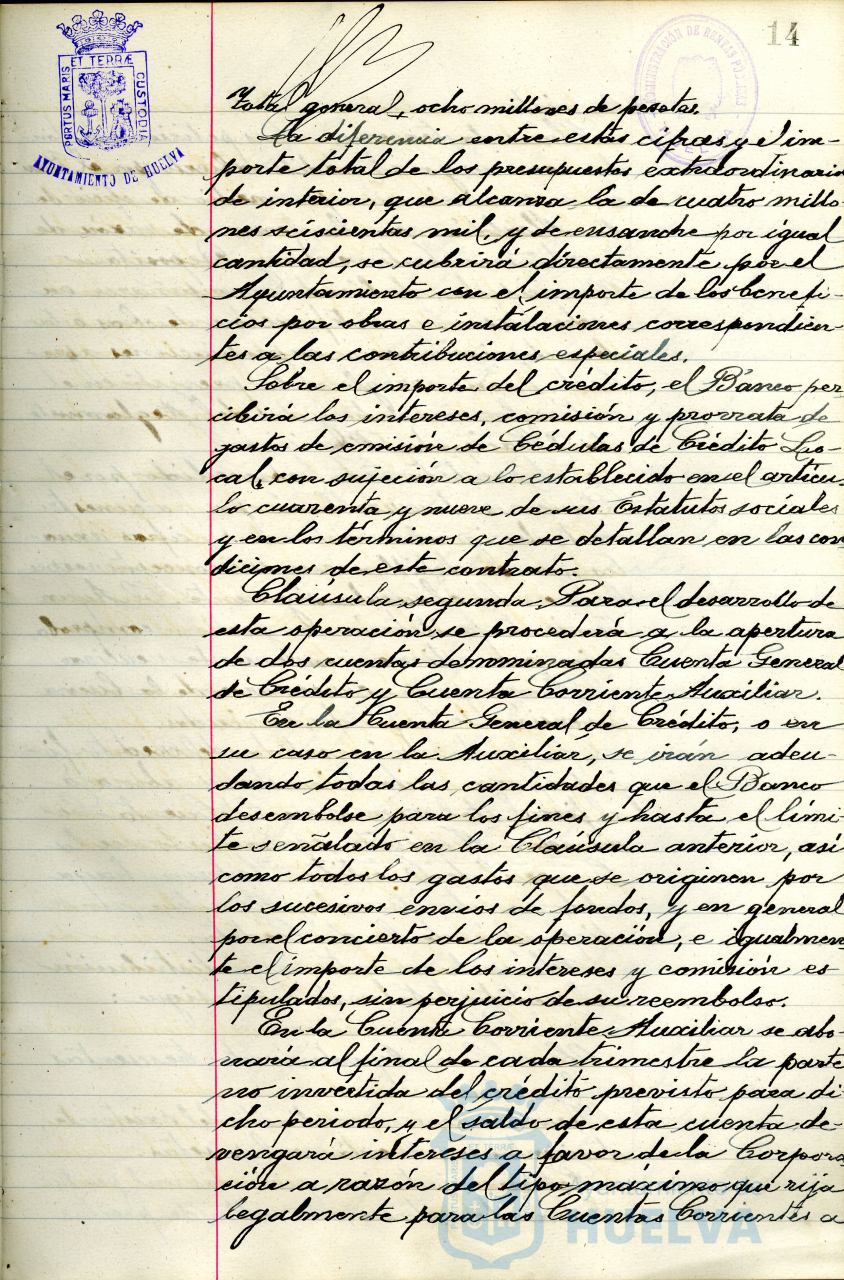 14
PORTUS MARIS ET TERRÆ CUSTODIA
AYUNTAMIENTO DE HUELVA
ADMINISTRACIÓN DE RENTAS PÚBLICAS
Total general, ocho millones de pesetas.
La diferencia entre estas cifras y el im-
porte total de los presupuestos extraordinario
de interior, que alcanza la de cuatro millo-
nes seiscientas mil, y de ensanche por igual
cantidad, se cubrirá directamente por el
Ayuntamiento con el importe de los benefi-
cios por obras e instalaciones correspondien-
tes a las contribuciones especiales.
Sobre el importe del crédito, el Banco per-
cibirá los intereses, comisión y prorrata de
gastos de emisión de Cédulas de Crédito Lo-
cal, con sujeción a lo establecido en el artícu-
lo cuarenta y nueve de sus Estatutos sociales
y en los términos que se detallan en las con
diciones de este contrato.
Cláusula segunda. Para el desarrollo de
esta operación se procederá a la apertura
de dos cuentas denominadas Cuenta General
de Crédito y Cuenta Corriente Auxiliar.
En la Cuenta General de Crédito, o en
su caso en la Auxiliar, se irán adeu-
dando todas las cantidades que el Banco
desembolse para los fines y hasta el lími-
te señalado en la Cláusula anterior, así
como todos los gastos que se originen por
los sucesivos envios de fondos, y en general
por el concierto de la operación, e igualmen-
te el importe de los intereses y comisión es
tipulados, sin perjuicio de su reembolso.
En la Cuenta Corriente Auxiliar se abo-
nará al final de cada trimestre la parte
no invertida del crédito previsto para di
cho periodo, y el saldo de esta cuenta de-
vengará intereses a favor de la Corpora-
ción a razón del tipo máximo que rija
legalmente para las Cuentas Corrientes a
HUELVA